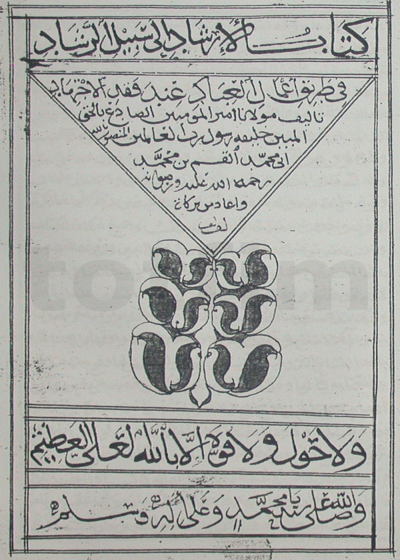 كتاب الارشاد الى سبيل الرشاد
في طريق اعمال العباد عند فقد الاجتهاد
تاليف مولانا امير المؤمنين الصادع بالحق
المبين خليفة رسول رب العالمين المنصور بالله
ابي محمد القسم بن محمد
رحمة الله عليه ورضوانه
واعاد من بركاته
ولا حول ولا قوة الا بالله تعالى العظيم
وصلى الله على سيدنا محمد وعلى آله وسلم